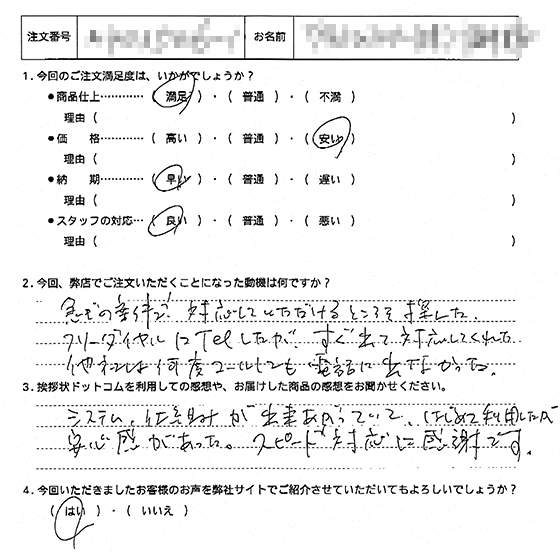 注文番号 お名前
1．今回のご注文満足度は、いかがでしょうか？
●商品仕上…………（ 満足 ）・（ 普通 ）・（ 不満 ）
理由（ ）
●価　　格…………（ 高い ）・（ 普通 ）・（ 安い ）
理由（ ）
●納　　期…………（ 早い ）・（ 普通 ）・（ 遅い ）
理由（ ）
●スタッフの対応…（ 良い ）・（ 普通 ）・（ 悪い ）
理由（ ）
2．今回、弊店でご注文いただくことになった動機は何ですか？
急ぎの案件で 対応していただけるところを探した。
フリーダイヤルにTelしたが、すぐ出て対応してくれた
他社は何度コールしても電話に出なかった。
3．挨拶状ドットコムを利用しての感想や、お届けした商品の感想をお聞かせください。
システム、 が出来あがっていて、はじめて利用したが
安心感があった。スピード対応に感謝です。
4．今回いただきましたお客様のお声を弊社サイトでご紹介させていただいてもよろしいでしょうか？
（ はい ）・（ いいえ ）